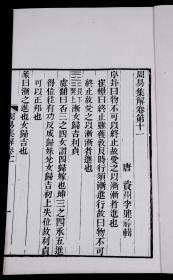 周易集解卷第十一
唐 資州李鼎祚輯
序卦曰物不可以終止故受之以漸漸者進也
崔憬曰終止雖獲敦艮時行須漸進行故曰物不可
終止故受之以漸漸者進也
艮下巽上漸女歸吉利貞
虞翻曰否三之四女謂四歸嫁也坤三之四承五進
得位往有功反成歸妹兌女歸吉初上失位故利貞
可以正邦也
彖曰漸之進也女歸吉也